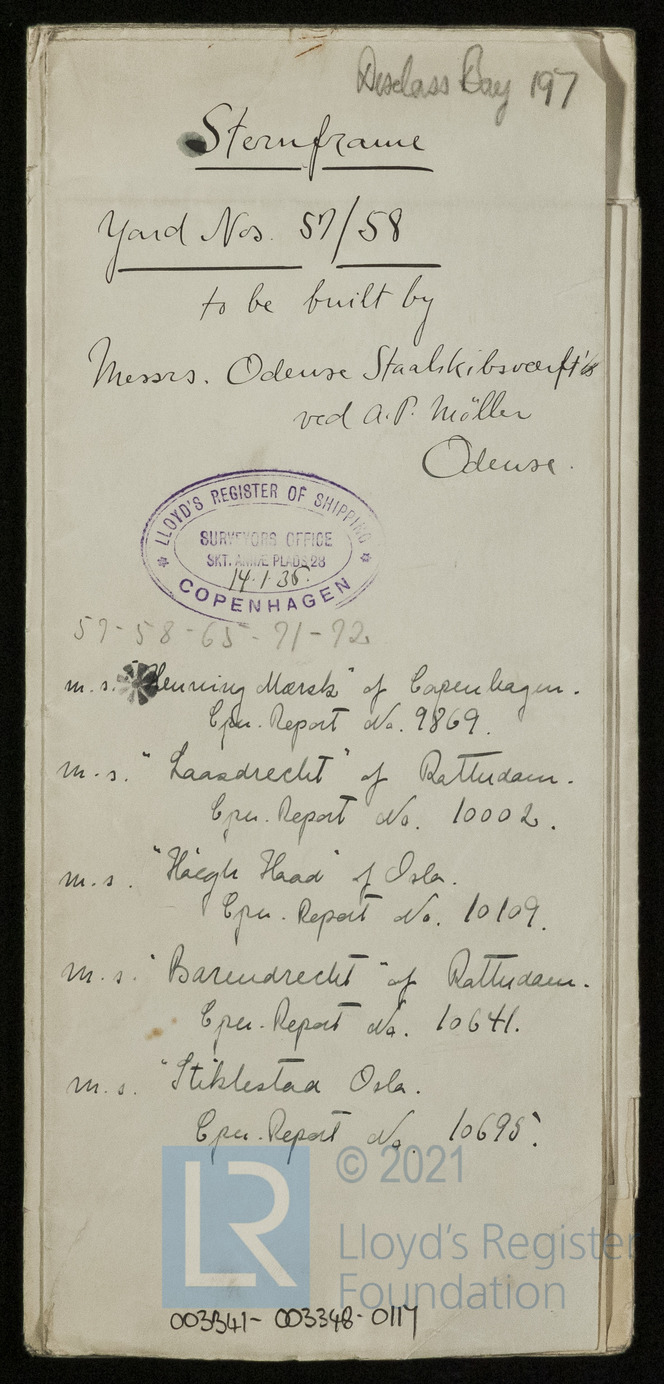 Disclass Bay 197
Sternframe
Yard Nos. 57/58
to be built by
Messrs. Odense Staalskibsværft A/S
ved A.P. Möller
Odense.
LLOYD'S REGISTER OF SHIPPING
SURVEYORS OFFICE
SKT. ANNÆ PLADS 28
14.1.36.
COPENHAGEN
57-58-65-71-72
m.s. "Henning Mærsk" of Copenhagen.
Cpn. Report No. 9869.
m.s. "Laasdrecht" of Rotterdam.
Cpn. Report No. 10002.
m.s. "Höegh Hood" of Oslo.
Cpn. Report No. 10109.
m.s. "Barendrecht" of Rotterdam.
Cpn. Report No. 10641.
m.s. "Stiklestad Oslo.
Cpn. Report No. 10695.
LR
© 2021
Lloyd's Register
Foundation
003341-003348-0117